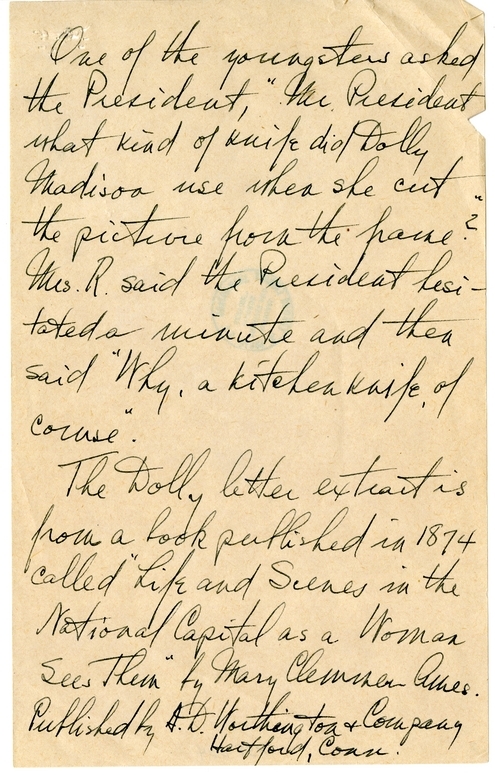 One of the youngsters asked
the President, "Mr. President
what kind of knife did Dolly
Madison use when she cut
the picture from the frame"?
Mrs. R. said the President hesi-
tated a minute and then
said "Why, a kitchen knife, of
course".
The Dolly letter extract is
from a book published in 1874
called "Life and Scenes in the
National Capital as a Woman
Sees Them" by Mary Clemmer Ames.
Published by A. D. Worthington & Company
Hartford, Conn.